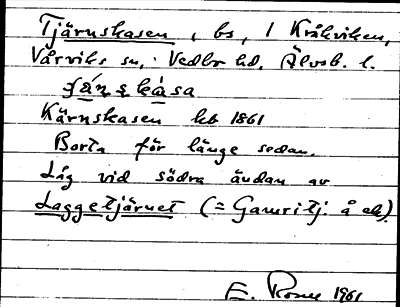 Tjärnskasen, bs, 1 Kråkviken,
Vårviks sn, Vedbo hd, Älvsb. l.
Kärnskasen hb 1861
Borta för länge sedan.
Låg vid södra ändan av
Laggetjärnet (= å ek).
E. 1961